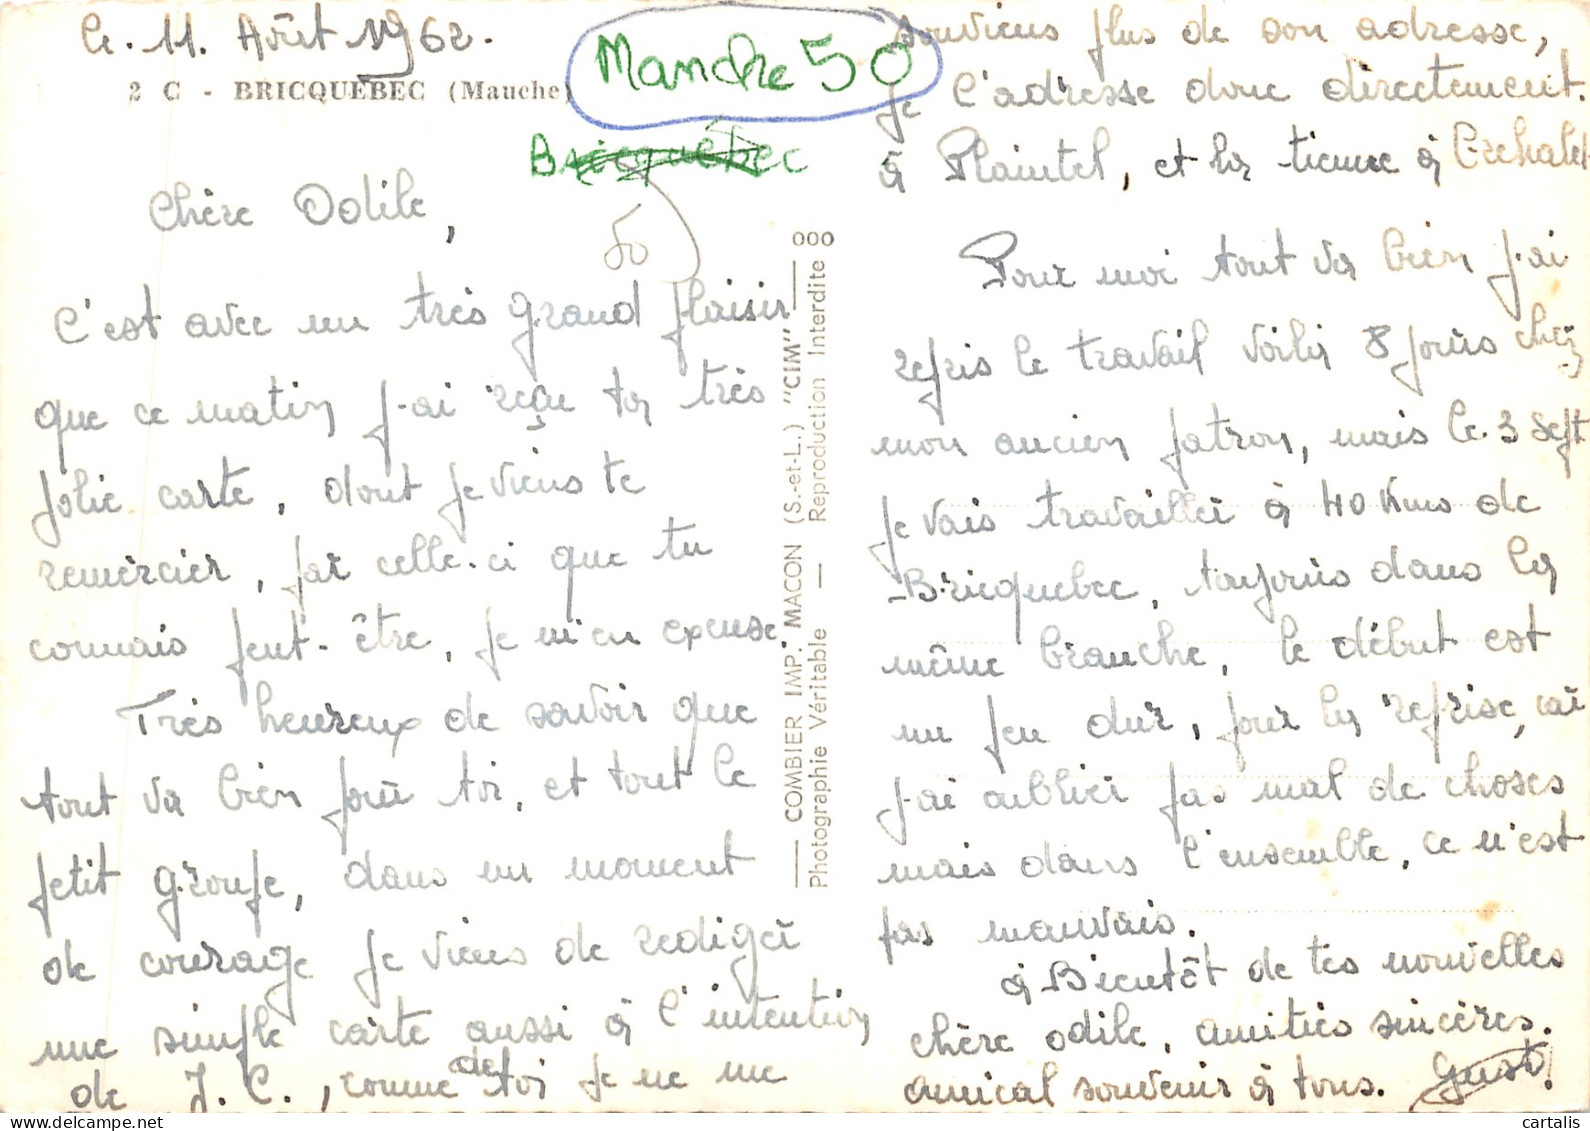 Le 11 Août 1962.
2 C - BRICQUEBEC (Manche)
Manche 50
Bricquébec
50
Chère Odile,
C'est avec un très grand plaisir
que ce matin j'ai reçu ta très
jolie carte, dont je viens te
remercier, par celle-ci que tu
connais peut-être, je m'en excuse
Très heureux de savoir que
tout va bien pour toi, et tout le
petit groupe, dans un moment
de courage je viens de rediger
une simple carte aussi à l'intention
de J. C., comme de toi je ne me
souviens plus de son adresse,
je l'adresse donc directement.
à Plaintel, et la tienne à
Pour moi tout va bien j'ai
repris le travail voilà 8 jours chez
mon ancien patron, mais le 3 Sept
je vais travailler à 40 Kms de
Bricquebec, toujours dans la
même branche, le début est
un peu dur, pour la reprise, car
j'ai oublier pas mal de choses
mais dans l'ensemble, ce n'est
pas mauvais.
à Bientôt de tes nouvelles
chère odile, amitiés sincères.
amical souvenir à tous.
COMBIER IMP. MACON (S.-et-L.) "CIM"
Photographie Véritable — Reproduction Interdite
000
cartalis
www.delcampe.net